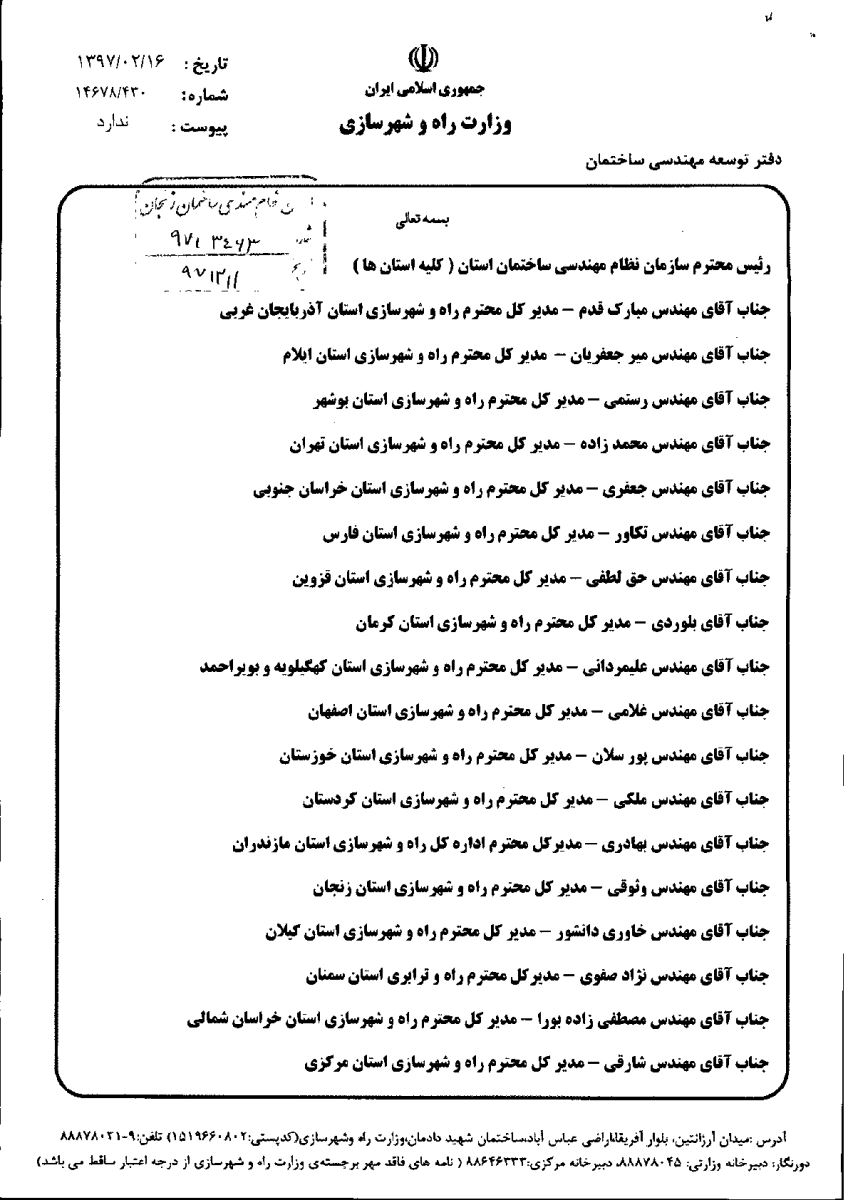 جمهوری اسلامی ایران
وزارت راه و شهرسازی
تاریخ : ۱۳۹۷/۰۲/۱۶
شماره: ۱۴۶۷۸/۴۳۰
پیوست : ندارد
دفتر توسعه مهندسی ساختمان
نظام مهندسی ساختمان زنجان
بسمه تعالی
رئیس محترم سازمان نظام مهندسی ساختمان استان ( کلیه استان ها )
جناب آقای مهندس مبارک قدم – مدیر کل محترم راه و شهرسازی استان آذربایجان غربی
جناب آقای مهندس میر جعفریان – مدیر کل محترم راه و شهرسازی استان ایلام
جناب آقای مهندس رستمی – مدیر کل محترم راه و شهرسازی استان بوشهر
جناب آقای مهندس محمد زاده – مدیر کل محترم راه و شهرسازی استان تهران
جناب آقای مهندس جعفری – مدیر کل محترم راه و شهرسازی استان خراسان جنوبی
جناب آقای مهندس تکاور – مدیر کل محترم راه و شهرسازی استان فارس
جناب آقای مهندس حق لطفی – مدیر کل محترم راه و شهرسازی استان قزوین
جناب آقای بلوردی – مدیر کل محترم راه و شهرسازی استان کرمان
جناب آقای مهندس علیمردانی – مدیر کل محترم راه و شهرسازی استان کهگیلویه و بویراحمد
جناب آقای مهندس غلامی – مدیر کل محترم راه و شهرسازی استان اصفهان
جناب آقای مهندس پور سلان – مدیر کل محترم راه و شهرسازی استان خوزستان
جناب آقای مهندس ملکی – مدیر کل محترم راه و شهرسازی استان کردستان
جناب آقای مهندس بهادری – مدیرکل محترم اداره کل راه و شهرسازی استان مازندران
جناب آقای مهندس وثوقی – مدیر کل محترم راه و شهرسازی استان زنجان
جناب آقای مهندس خاوری دانشور – مدیر کل محترم راه و شهرسازی استان گیلان
جناب آقای مهندس نژاد صفوی – مدیرکل محترم راه و ترابری استان سمنان
جناب آقای مهندس مصطفی زاده بورا – مدیر کل محترم راه و شهرسازی استان خراسان شمالی
جناب آقای مهندس شارقی – مدیر کل محترم راه و شهرسازی استان مرکزی
آدرس :میدان آرژانتین، بلوار آفریقا،اراضی عباس آباد،ساختمان شهید دادمان،وزارت راه وشهرسازی(کدپستی:۱۵۱۹۶۶۰۸۰۲) تلفن:۹-۸۸۸۷۸۰۳۱
دورنگار: دبیرخانه وزارتی: ۸۸۸۷۸۰۴۵، دبیرخانه مرکزی:۸۸۶۴۶۳۳۳ ( نامه های فاقد مهر برجسته‌ی وزارت راه و شهرسازی از درجه اعتبار ساقط می باشد)